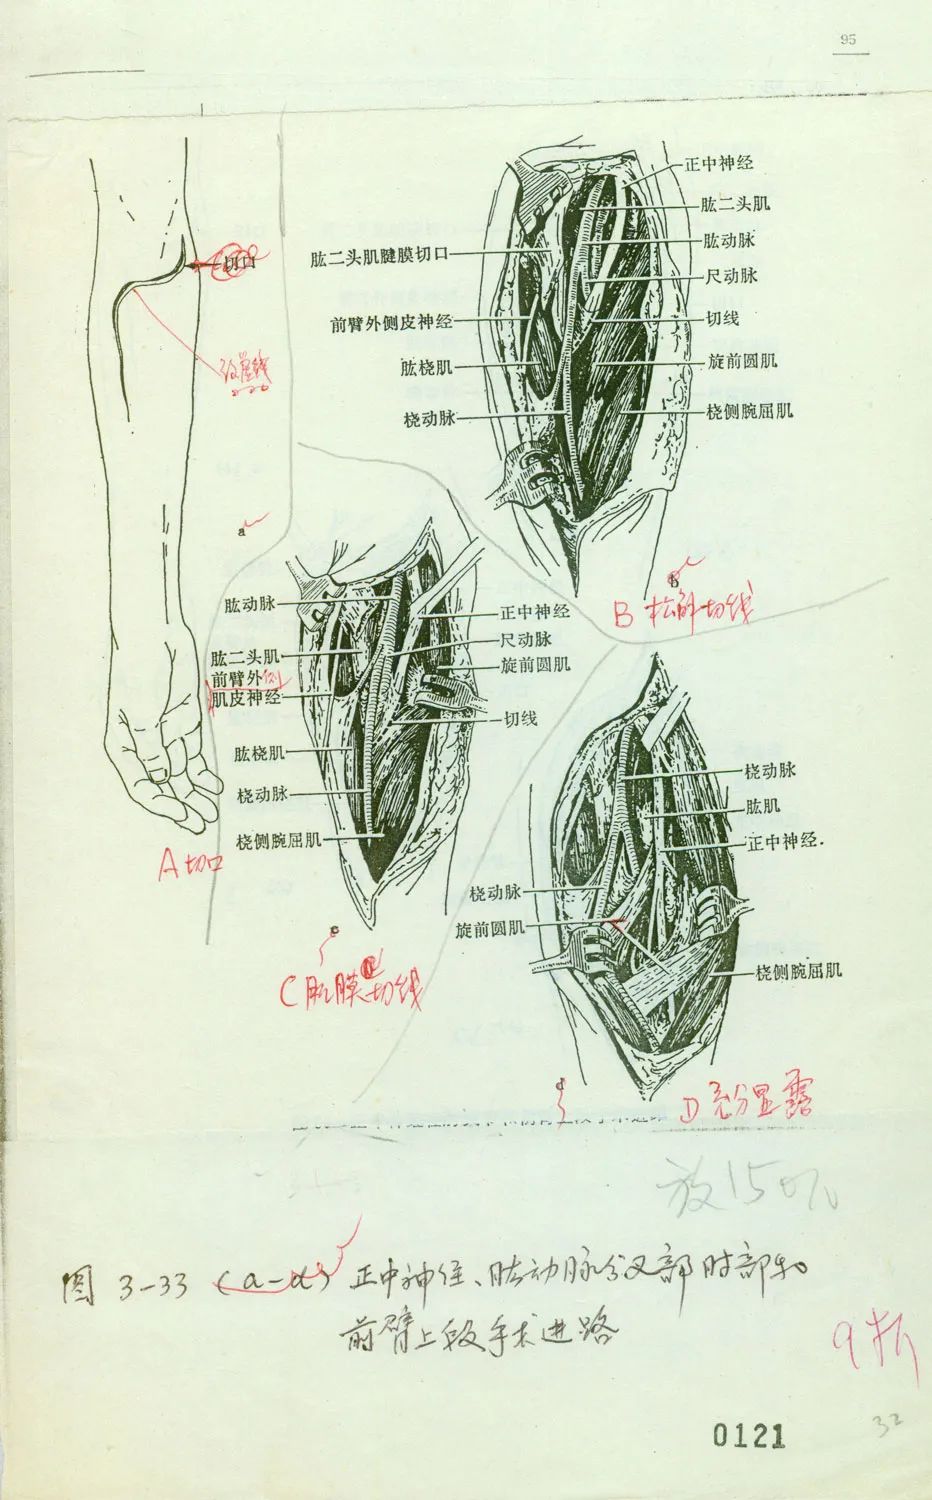 95
切口
a
正中神经
肱二头肌
肱动脉
尺动脉
切线
旋前圆肌
桡侧腕屈肌
肱二头肌腱膜切口
前臂外侧皮神经
肱桡肌
桡动脉
b
B 松解切线
肱动脉
肱二头肌
前臂外侧
肌皮神经
肱桡肌
桡动脉
桡侧腕屈肌
正中神经
尺动脉
旋前圆肌
切线
A 切口
c
C 肌膜切线
桡动脉
肱肌
正中神经.
桡动脉
旋前圆肌
桡侧腕屈肌
d
D 充分显露
图 3-33 (a-d) 正中神经、肱动脉分叉部肘部和
前臂上段手术进路
0121
32